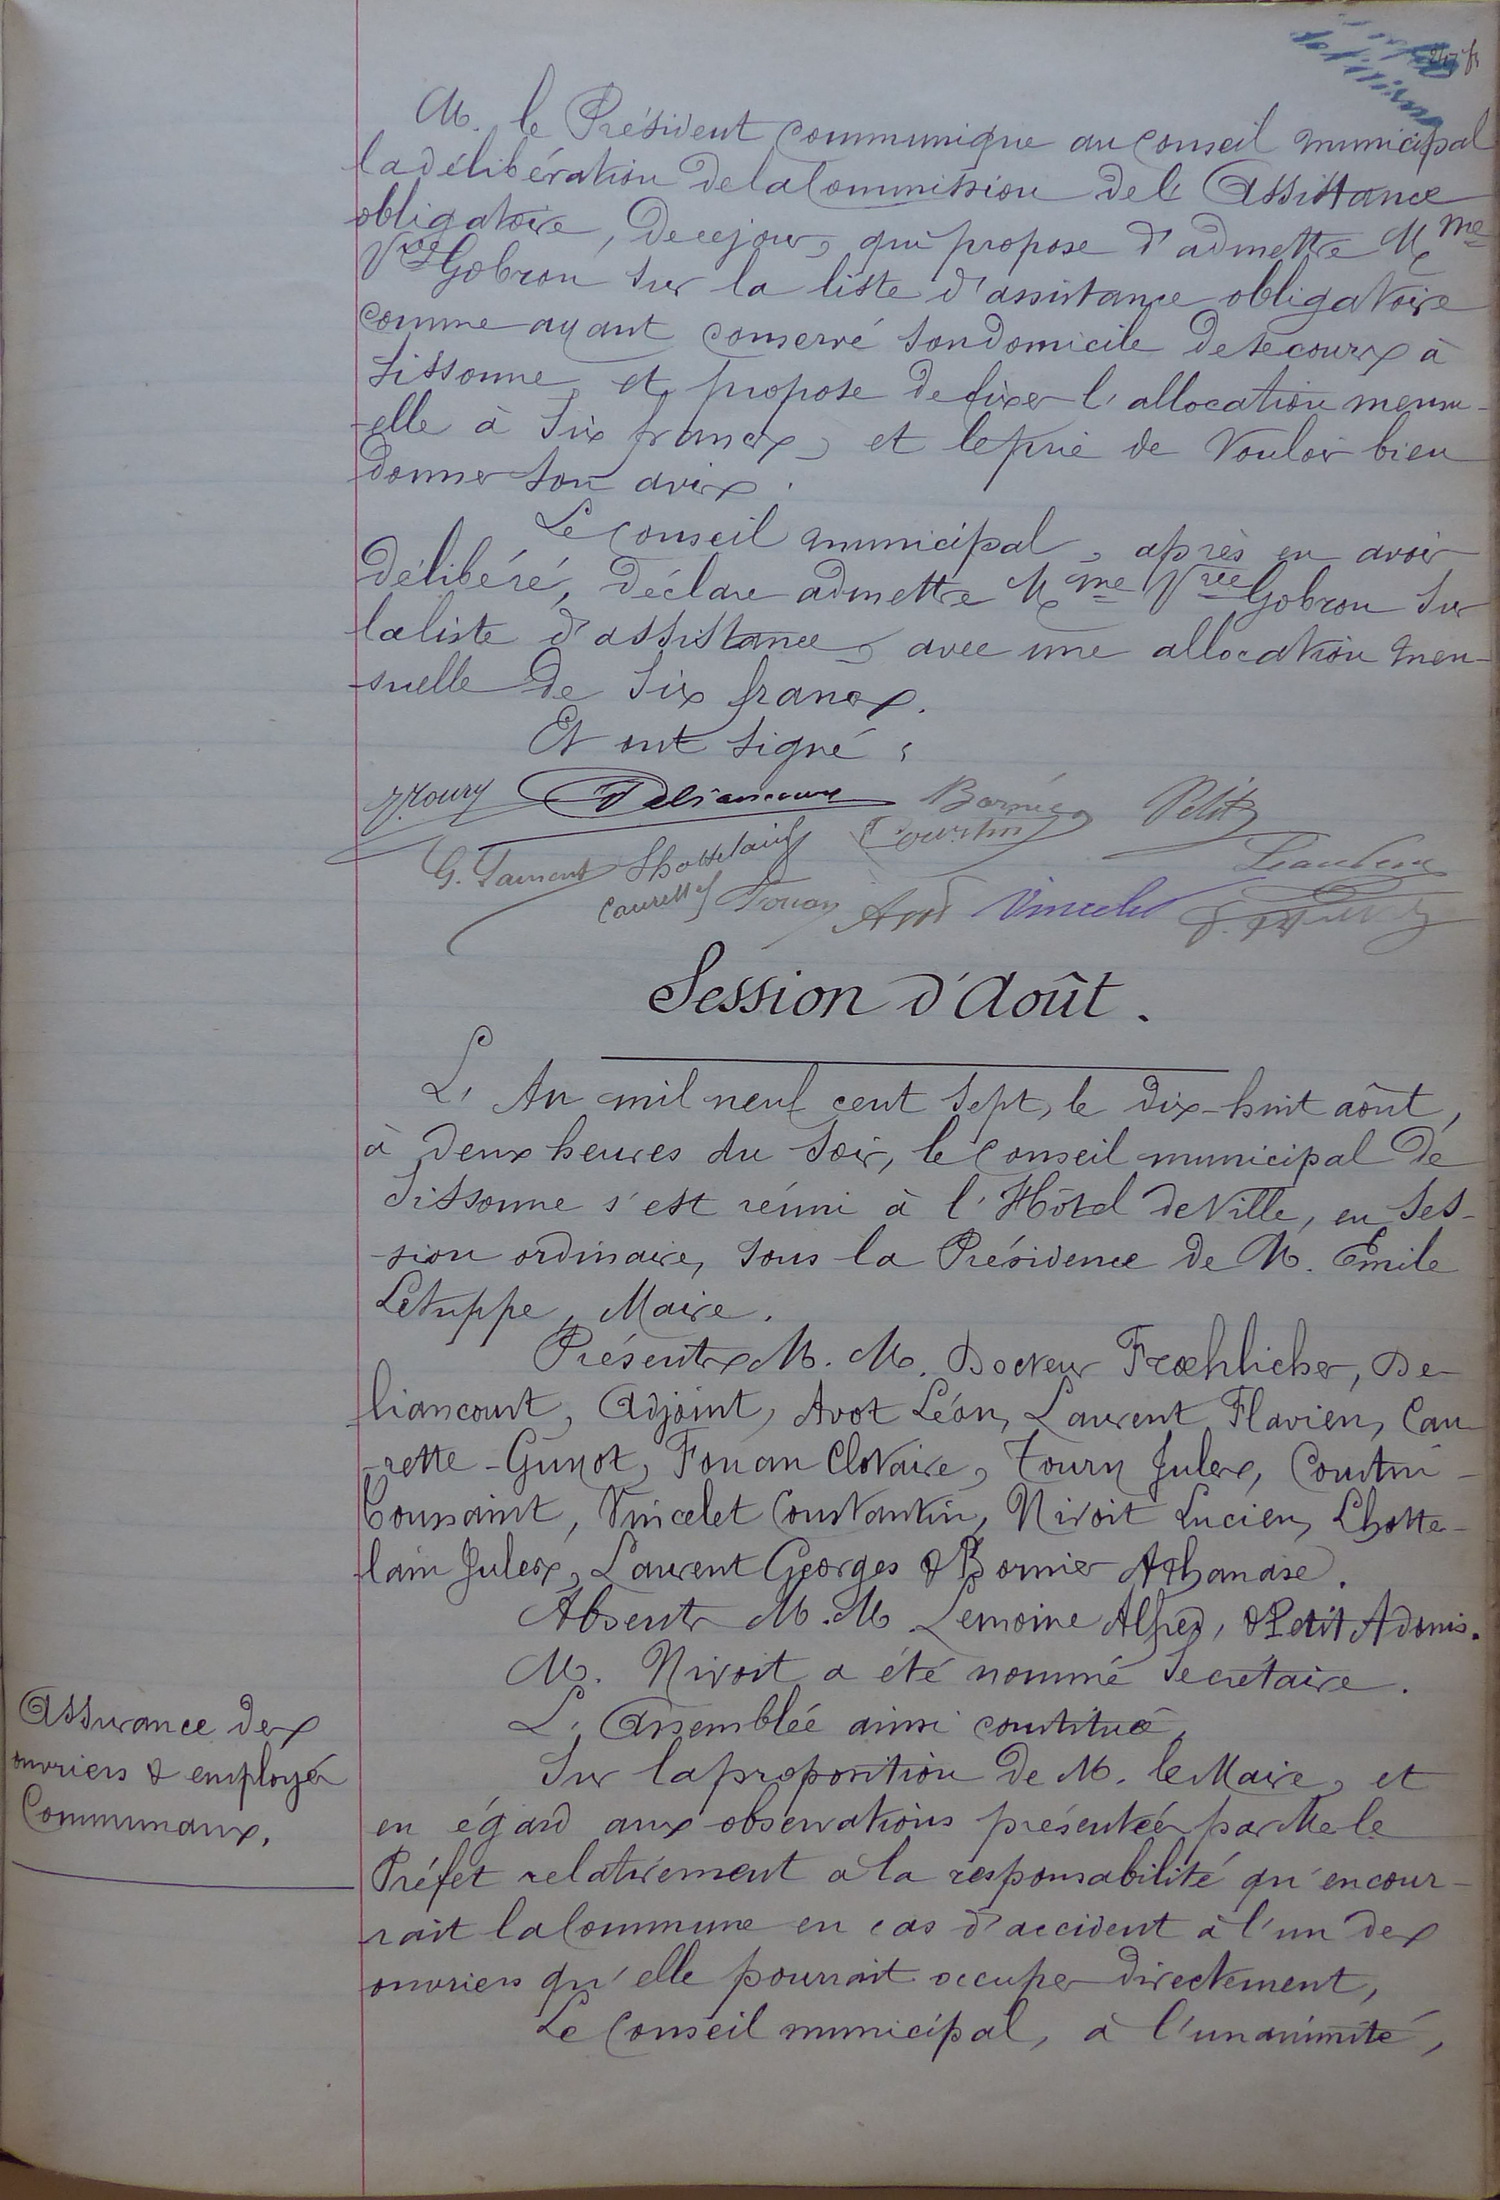 M. le Président communique au Conseil municipal
la délibération de la Commission de l'Assistance
obligatoire, de ce jour, qui propose d'admettre Mme
Vve Gobron sur la liste d'assistance obligatoire
comme ayant conservé son domicile de secours à
Sissonne, et propose de fixer l'allocation mensu-
-elle à six francs, et le prie de vouloir bien
donner son avis.
Le Conseil municipal, après en avoir
délibéré, déclare admettre Mme Vve Gobron sur
la liste d'assistance, avec une allocation men-
-suelle de six francs.
Et ont signé :
J. Toury Deliancourt Bornier Petit
G. Laurent Lhottelain Courtin
Caurette Fouan Avot Vincelet
Session d'Août.
L'An mil neuf cent sept, le dix-huit août,
à deux heures du soir, le Conseil municipal de
Sissonne s'est réuni à l'Hôtel de Ville, en ses-
-sion ordinaire, sous la Présidence de M. Emile
Letuppe, Maire.
Présents M. M. Docteur Froehlicher, De-
liancourt, Adjoint, Avot Léon, Laurent Flavien, Cau-
-rette-Guyot, Fouan Clovaire, Toury Jules, Courtin-
Toussaint, Vincelet Constantin, Nivoit Lucien, Lhotte-
lain Jules, Laurent Georges & Bornier Athanase.
Absents M. M. Lemoine Alfred, & Petit Adonis.
M. Nivoit a été nommé Secrétaire.
L'Assemblée ainsi constitué,
Assurance des
ouvriers & employés
Communaux.
Sur la proposition de M. le Maire, et
eu égard aux observations présentées par M. le
Préfet relativement a la responsabilité qu'encour-
-rait la Commune en cas d'accident à l'un des
ouvriers qu'elle pourrait occuper directement,
Le Conseil municipal, à l'unanimité,